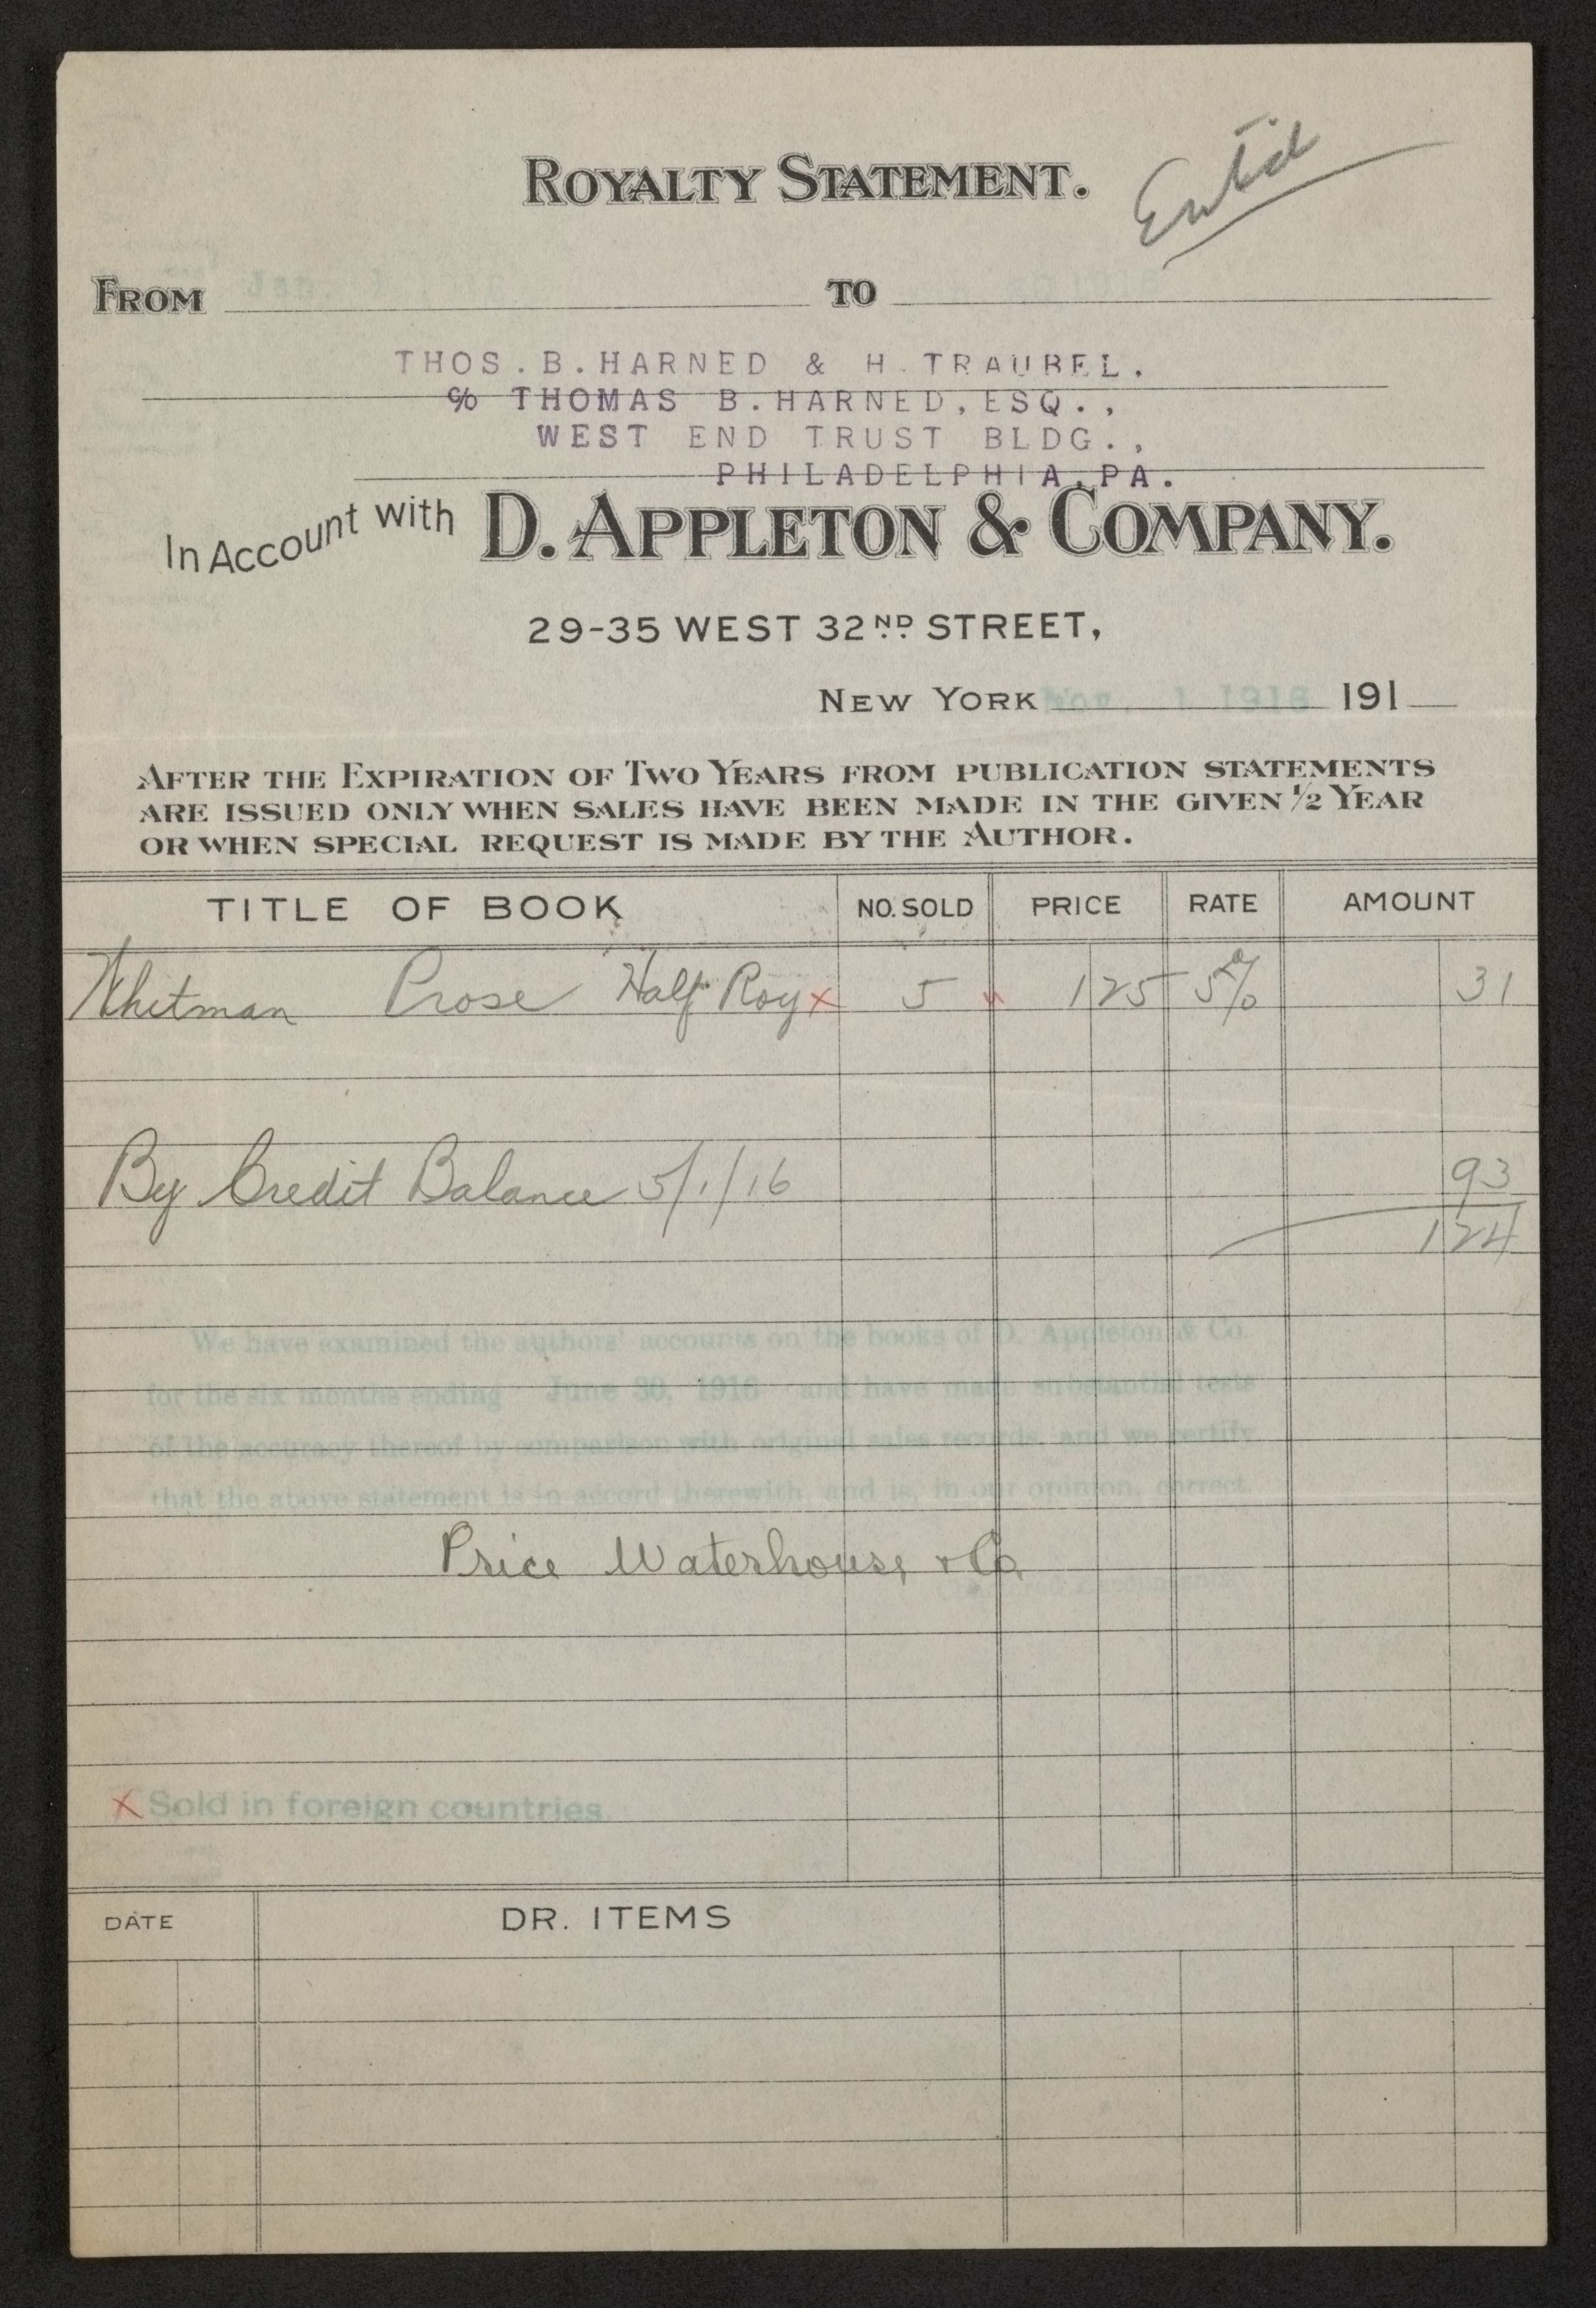 ROYALTY STATEMENT.
Ent'd
FROM Jan. TO
THOS. B. HARNED & H. TRAUBEL.
℅ THOMAS B. HARNED, ESQ.,
WEST END TRUST BLDG.,
PHILADELPHIA, PA.
In Account with D. APPLETON & COMPANY.
29-35 WEST 32ND STREET,
NEW YORK Nov. 1 1916 191
AFTER THE EXPIRATION OF TWO YEARS FROM PUBLICATION STATEMENTS
ARE ISSUED ONLY WHEN SALES HAVE BEEN MADE IN THE GIVEN ½ YEAR
OR WHEN SPECIAL REQUEST IS MADE BY THE AUTHOR.
TITLE OF BOOK NO. SOLD PRICE RATE AMOUNT
Whitman Prose Half Roy x 5 x 1 25 5% 31
By Credit Balance 5/1/16 93
1 24
We have examined the authors' accounts on the books of D. Appleton & Co.
for the six months ending June 30, 1916 and have made substantial tests
of the accuracy thereof by comparison with original sales records, and we certify
that the above statement is in accord therewith, and is, in our opinion, correct.
Price Waterhouse & Co.
x Sold in foreign countries.
DATE DR. ITEMS